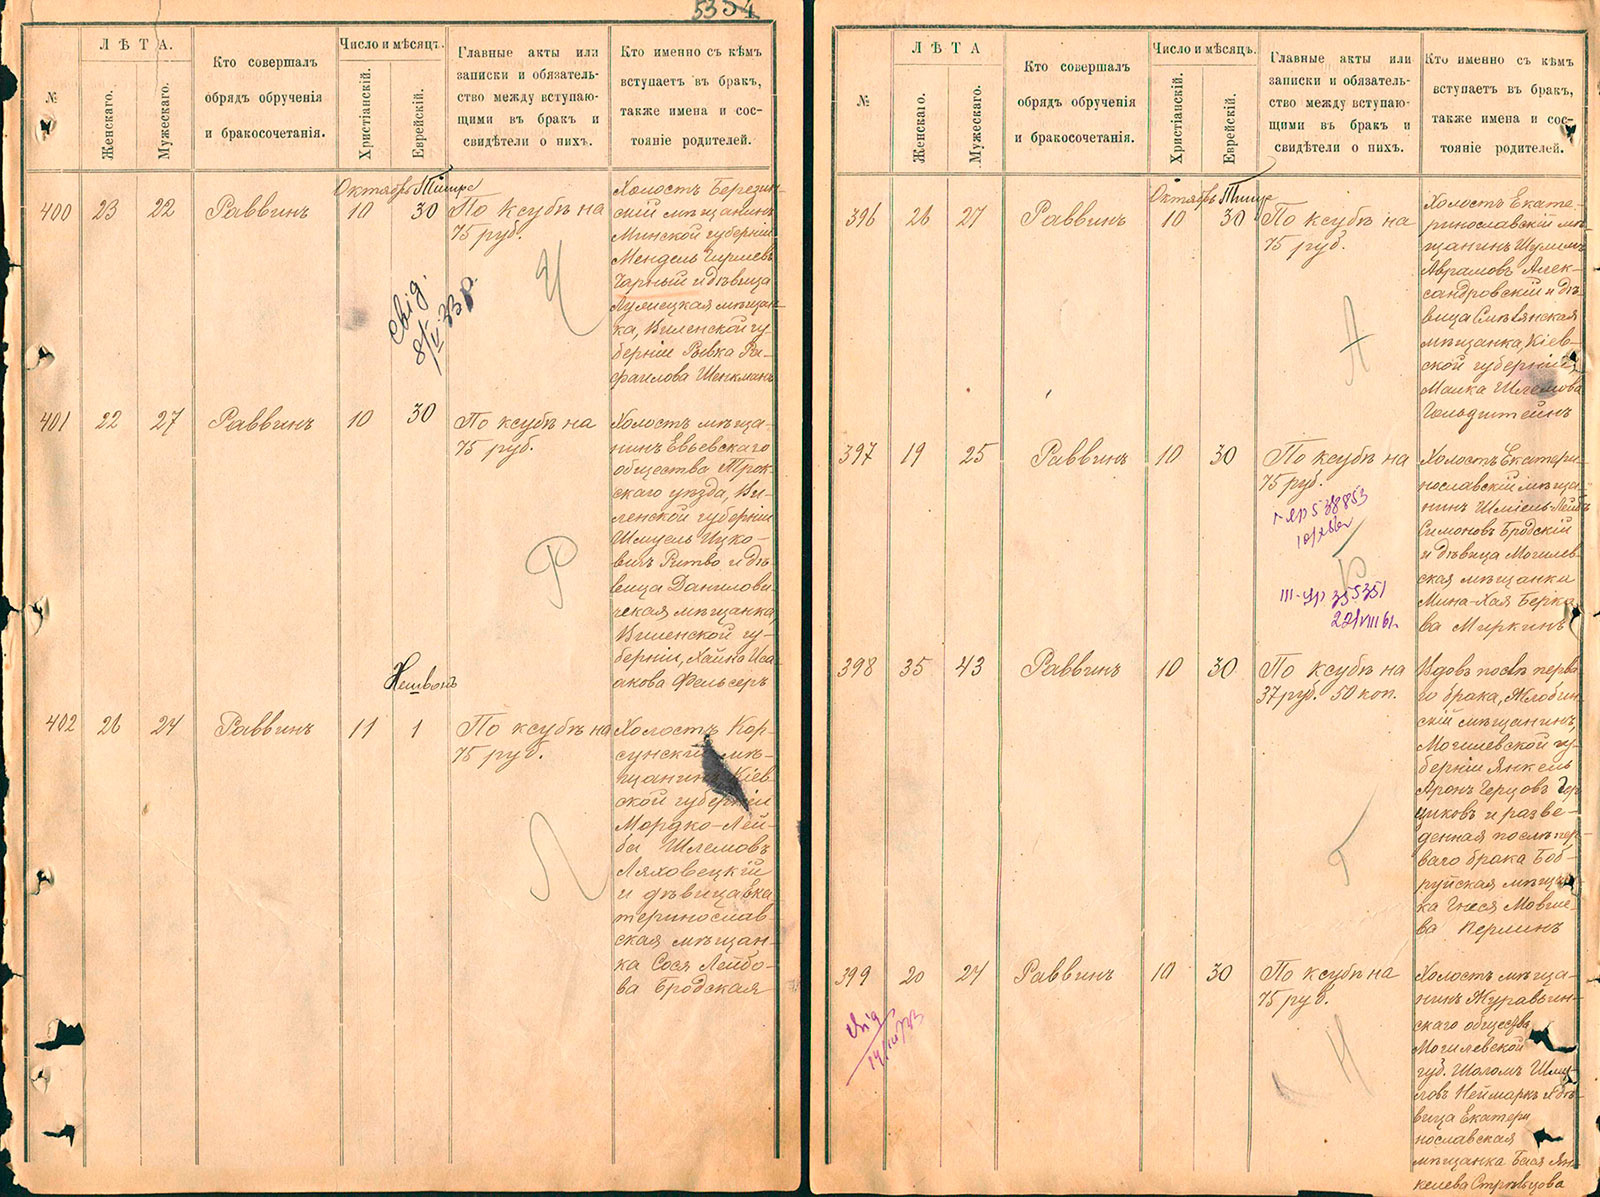 5354
№
ЛѢТА.
Женскаго.
Мужескаго.
Кто совершалъ
обрядъ обрученія
и бракосочетанія.
Число и мѣсяцъ.
Христіанскій.
Еврейскій.
Главные акты или
записки и обязатель-
ство между вступаю-
щими въ бракъ и
свидѣтели о нихъ.
Кто именно съ кѣмъ
вступаетъ въ бракъ,
также имена и сос-
тояніе родителей.
Октябрь Тишре
400 23 22 Раввинъ 10 30
По ксубѣ на
75 руб.
свід.
Ч
Холостъ Березин-
скій мѣщанинъ
Минской губерніи
Мендель
Чарный и дѣвица
мѣщан-
ка, Виленской гу-
берніи Ривка Ра-
фаилова Шенкманъ
401 22 27 Раввинъ 10 30
По ксубѣ на
75 руб.
Р
Холостъ мѣща-
нинъ Евьевскаго
общества Трок-
скаго уѣзда, Ви-
ленской губерніи
Шмуель Ицко-
вичъ Ритво и дѣ-
вица Данилови-
ческая мѣщанка,
Виленской гу-
берніи, Хайка Иса-
акова Фельсеръ
Хешвонъ
402 26 24 Раввинъ 11 1
По ксубѣ на
75 руб.
Л
Холостъ Кор-
сунскій мѣ-
щанинъ Кіев-
ской губерніи
Мордко-Лей-
ба Шлемовъ
Ляховецкій
и дѣвица Ека-
теринослав-
ская мѣщан-
ка Сося Лейбо-
ва Бродская
№
ЛѢТА
Женскаго.
Мужескаго.
Кто совершалъ
обрядъ обрученія
и бракосочетанія.
Число и мѣсяцъ.
Христіанскій.
Еврейскій.
Главные акты или
записки и обязатель-
ство между вступаю-
щими въ бракъ и
свидѣтели о нихъ.
Кто именно съ кѣмъ
вступаетъ въ бракъ,
также имена и сос-
тояніе родителей.
Октябрь Тишре
396 26 27 Раввинъ 10 30
По ксубѣ на
75 руб.
А
Холостъ Екате-
ринославскій мѣ-
щанинъ Шулимъ
Аврамовъ Алек-
сандровскій и дѣ-
вица Смѣлянская
мѣщанка, Кіев-
ской губерніи,
Малка Шлемова
Гольдштейнъ
397 19 25 Раввинъ 10 30
По ксубѣ на
75 руб.
538853
III-яр 355351
22/VIII 61г.
Холостъ Екатери-
нославскій мѣща-
нинъ Шміель-Лейбъ
Симоновъ Бродскій
и дѣвица Могилев-
ская мѣщанка
Мина-Хая Берка-
ва Миркинъ
398 35 43 Раввинъ 10 30
По ксубѣ на
37 руб. 50 коп.
Г
Вдовъ послѣ перва-
го брака, Жлобин-
скій мѣщанинъ,
Могилевской гу-
берніи Янкель
Аронъ Герцовъ Гер-
циковъ и разве-
денная послѣ пер-
ваго брака Боб-
руйская мѣщан-
ка Гнеся Мовше-
ва Перлинъ
399 20 24 Раввинъ 10 30
По ксубѣ на
75 руб.
Н
Холостъ мѣща-
нинъ Журавичи-
скаго общества
Могилевской
губ. Шоломъ Шму-
ловъ Неймаркъ и дѣ-
вица Екатери
нославская
мѣщанка Бася Ян-
келева Стрѣльцова